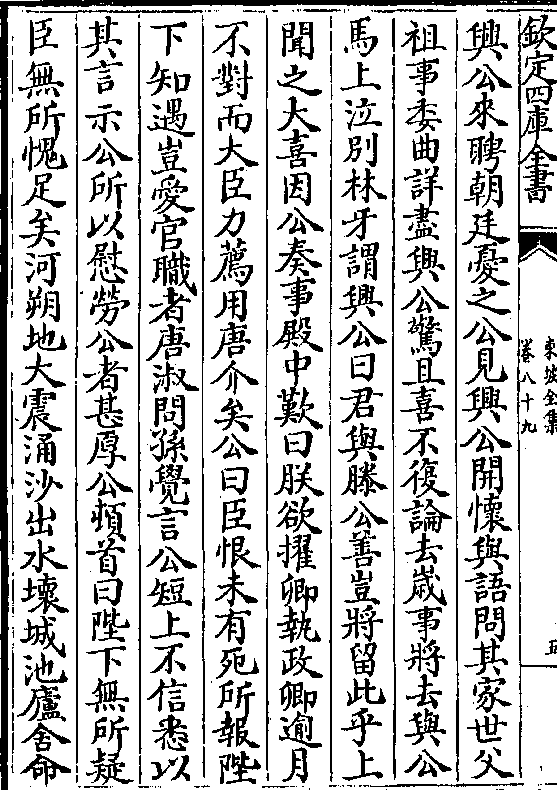 欽定四庫全書
東坡全集
卷八十九
五
興公來聘朝廷憂之公見興公開懷與語問其家世父
祖事委曲詳盡興公驚且喜不復論去歲事將去與公
馬上泣別林牙謂興公曰君與滕公善豈將留此乎上
聞之大喜因公奏事殿中歎曰朕欲擢卿執政卿逾月
不對而大臣力薦用唐介矣公曰臣恨未有死所報陛
下知遇豈愛官職者唐淑問孫覺言公短上不信悉以
其言示公所以慰勞公者甚厚公頓首曰陛下無所疑
臣無所愧足矣河朔地大震涌沙出水壞城池廬舍命